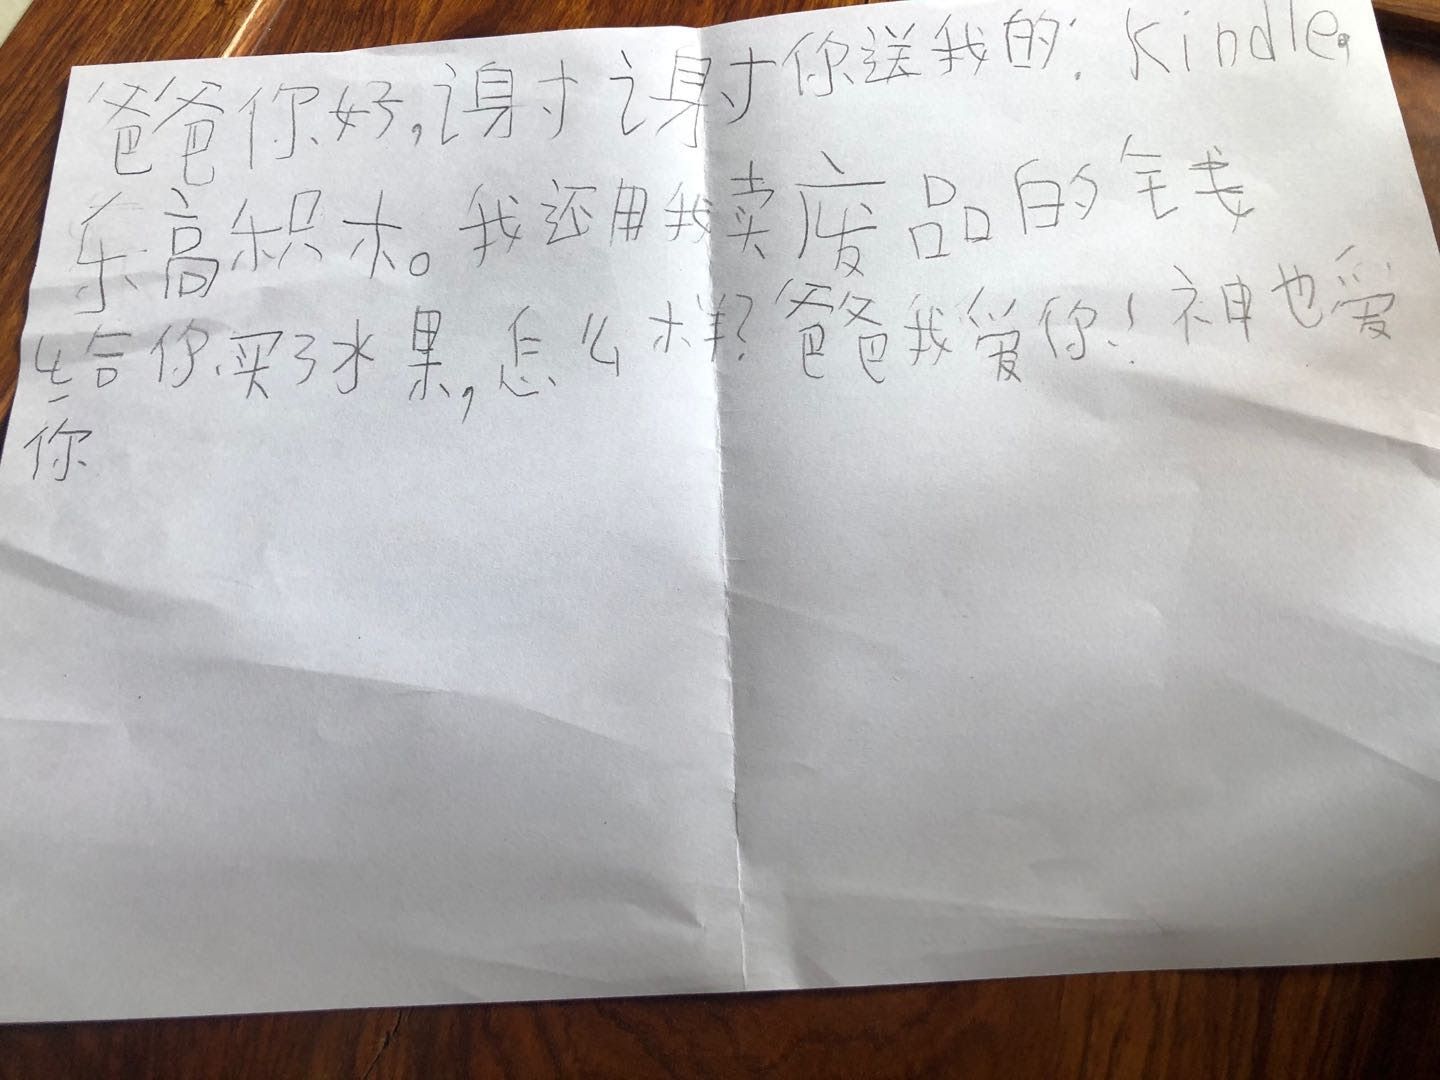 爸爸你好,谢谢你送我的:Kindle.
乐高积木。我还用我卖废品的钱
给你买了水果,怎么样?爸爸我爱你!神也爱
你